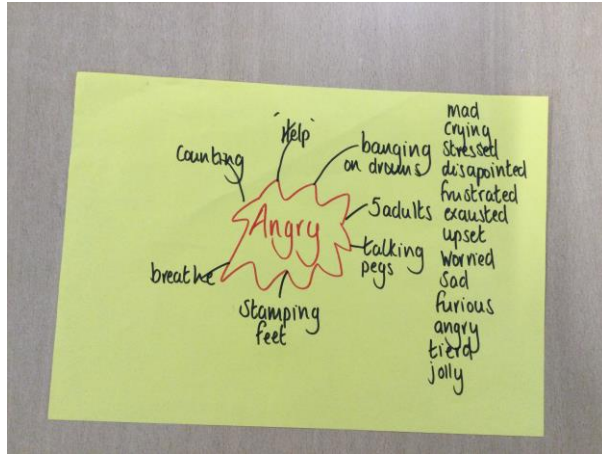 'Help'
Counting
banging
on drums
Angry
5adults
talking
pegs
breathe
Stamping
feet
mad
Crying
stressed
disapointed
frustrated
exausted
upset
worried
Sad
furious
angry
tierd
jolly